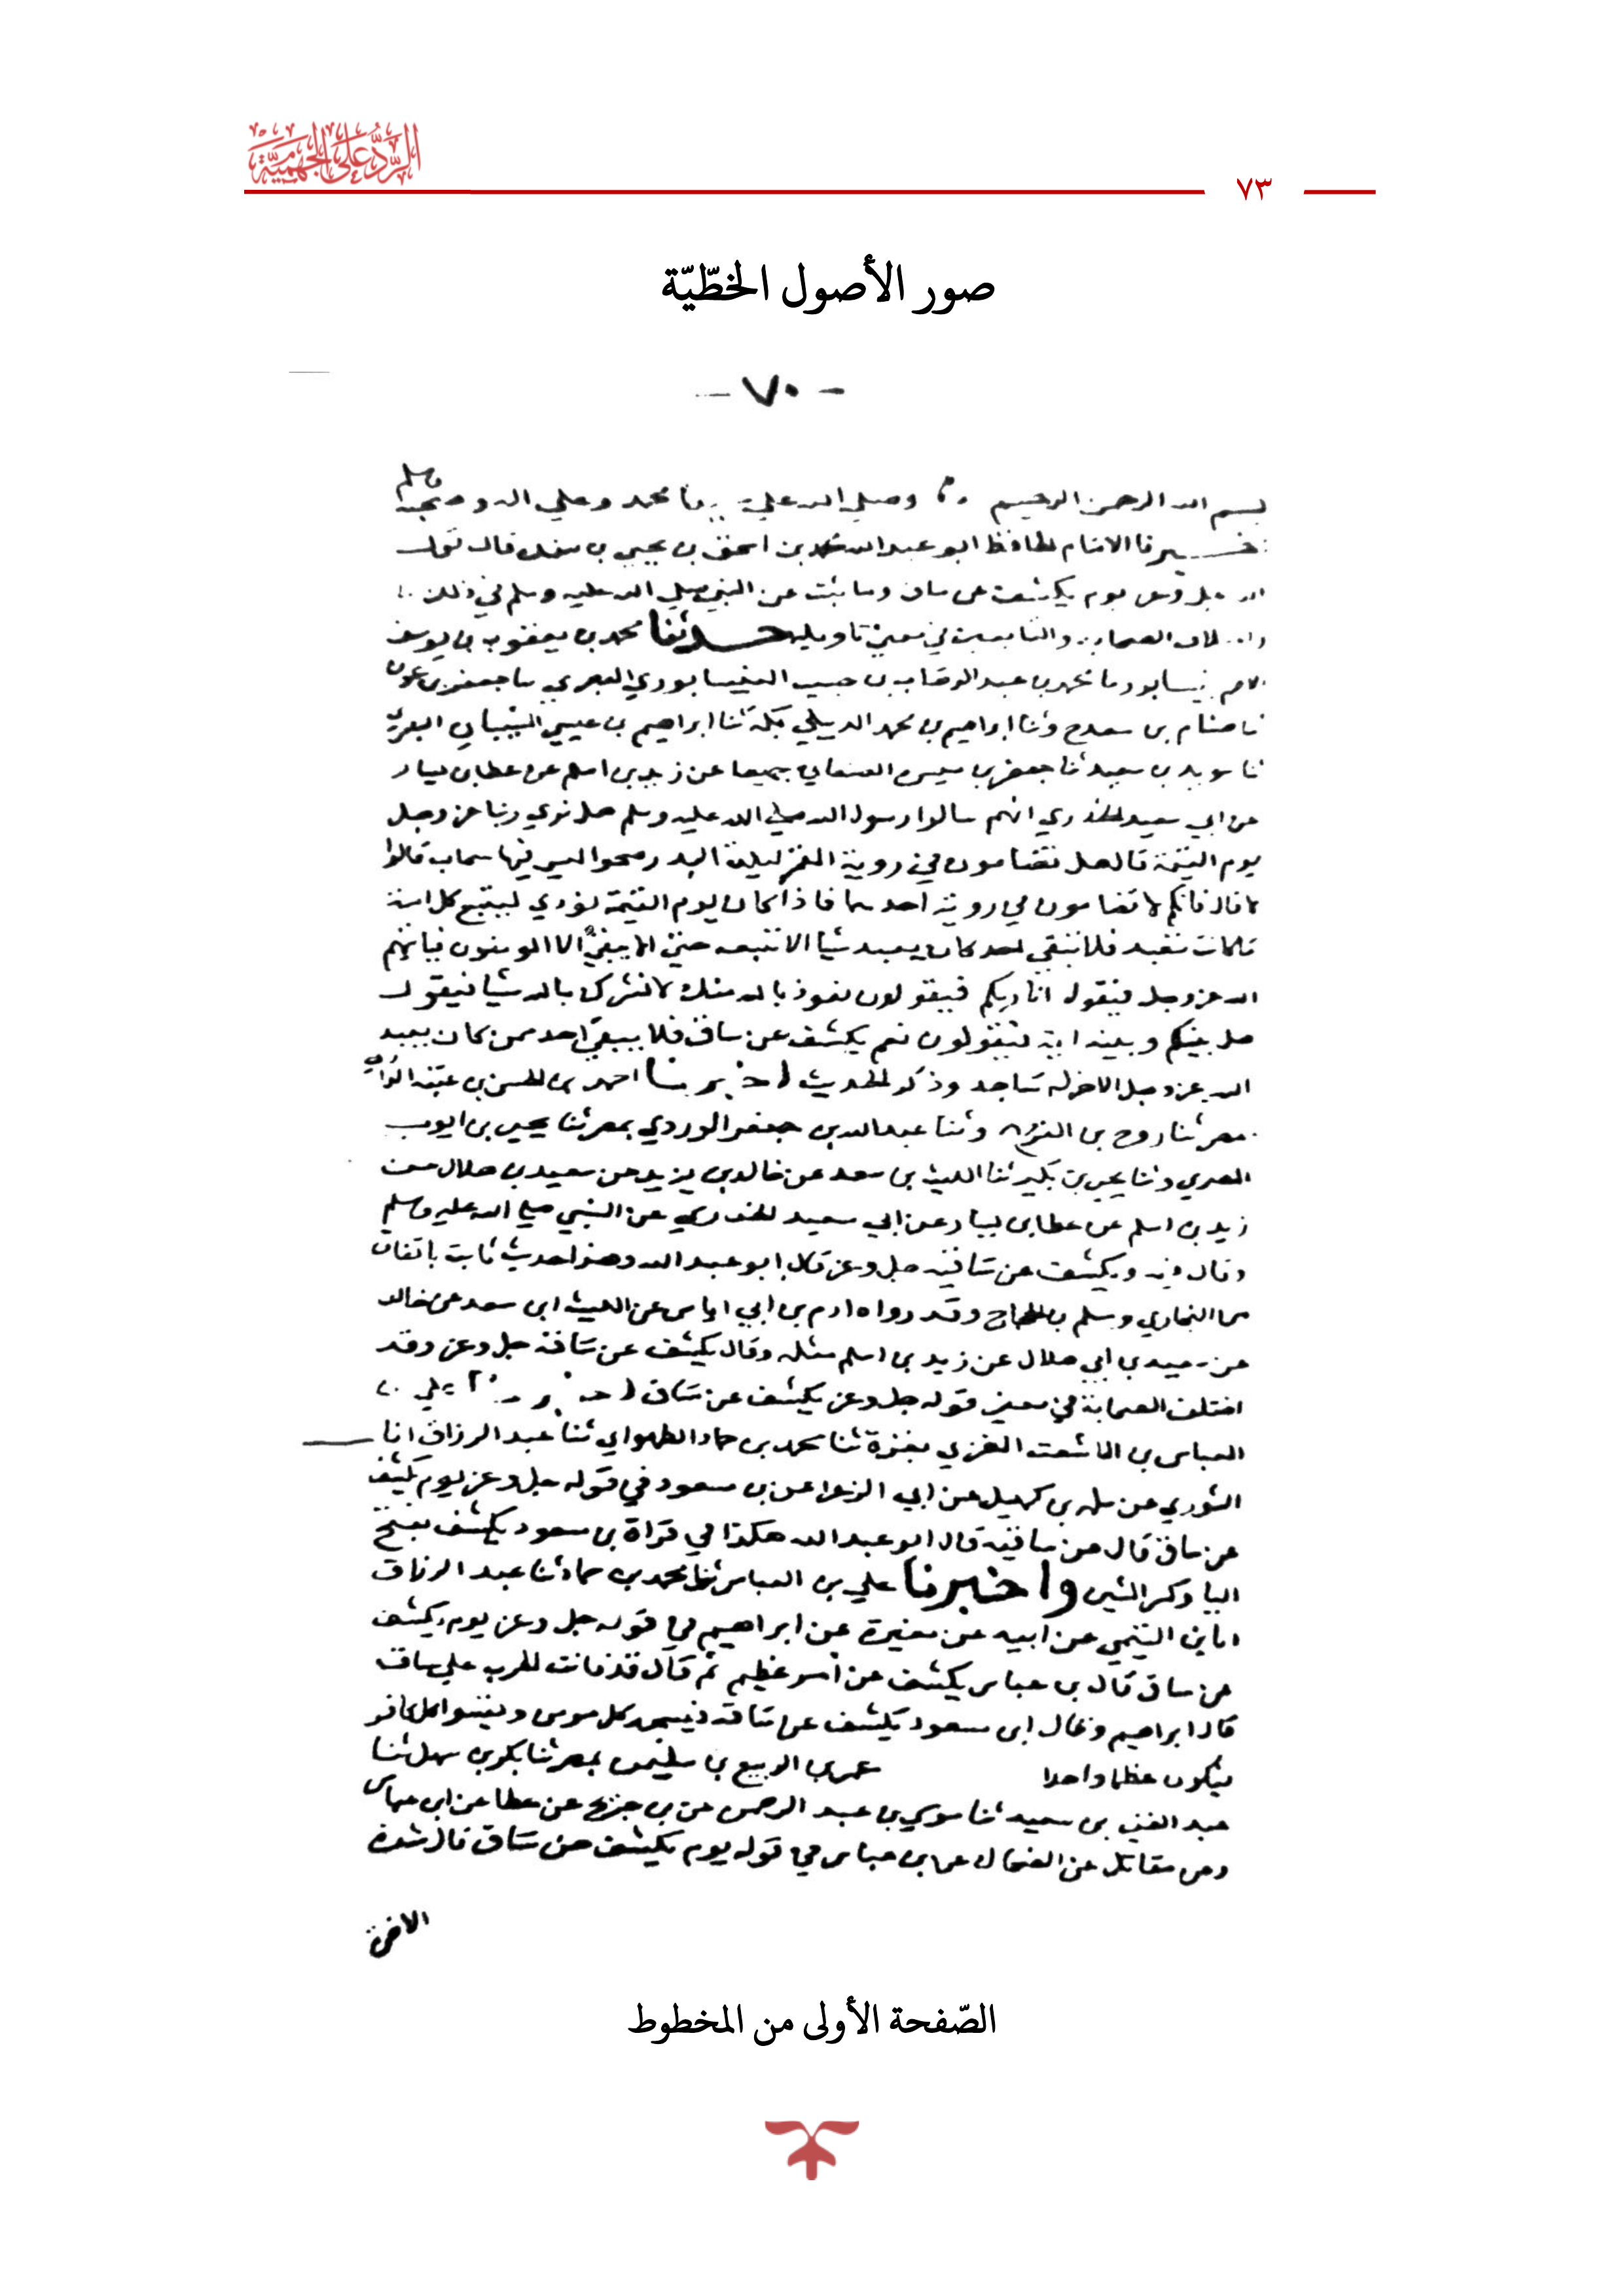 الرد على الجهمية
٧٣
صور الأصول الخطّيّة
- ٧٠ -
بسم الله الرحمن الرحيم وصلى الله على محمد وعلي اله وصحبه وسلم
الامام الحافظ ابو عبد الله محمد بن اسحق بن يحيى بن منده قال
يوم يكشف عن ساق وما ثبت عن النبي صلي الله عليه وسلم في ذلك
والتابعين في معني تاويله حدثنا محمد بن يعقوب بن يوسف
محمد بن عبد الوهاب بن حبيب النيسابوري العبدي ثنا جعفر بن عون
ثنا هشام بن سعد ح وثنا ابراهيم بن محمد الديبلي بمكة ثنا ابراهيم بن عيسي الشيباني
ثنا سويد بن سعيد ثنا جعفر بن ميسرة الصنعاني جميعا عن زيد بن اسلم عن عطا بن يسار
عن ابي سعيد الخدري انهم سالوا رسول الله صلي الله عليه وسلم هل نري ربنا عز وجل
يوم القيمة قال هل تضامون في روية القمر ليلة البدر صحوا ليس فيها سحاب قالوا
لا قال فانكم لا تضامون في رويته احدهما فاذا كان يوم القيمة نودي ليتبع كل امة
ما كانت تعبد فلا يبقي احد كان يعبد شيا الا تبعه حتي لا يبقي الا المومنون فياتيهم
الله عز وجل فيقول انا ربكم فيقولون نعوذ بالله منك لا نشرك بالله شيا فيقول
هل بينكم وبينه اية فيقولون نعم يكشف عن ساق فلا يبقي احد ممن كان يعبد
الله عز وجل الا خر له ساجد وذكر الحديث اخبرنا احمد بن الحسن بن عتبة الرازي
بمصر ثنا روح بن الفرج وثنا عبد الله بن جعفر الوردي بمصر ثنا يحيى بن ايوب
المصري وثنا يحيى بن بكير ثنا الليث بن سعد عن خالد بن يزيد عن سعيد بن هلال عن
زيد بن اسلم عن عطا بن يسار عن ابي سعيد الخدري عن النبي صلي الله عليه وسلم
وقال فيه ويكشف عن ساقيه جل وعز قال ابو عبد الله وهذا حديث ثابت باتفاق
من البخاري ومسلم بن الحجاج وقد رواه ادم بن ابي اياس عن الليث ابن سعد عن خالد
عن سعيد بن ابي هلال عن زيد بن اسلم مثله وقال يكشف عن ساقه جل وعز وقد
اختلف الصحابة في معني قوله جل وعز يكشف عن ساق اخبرنا علي بن
العباس بن الاشعث الغزي بغزة ثنا محمد بن حماد الطهراني ثنا عبد الرزاق انا
الثوري عن سلمه بن كهيل عن ابي الزعرا عن بن مسعود في قوله جل وعز يوم يكشف
عن ساق قال عن ساقيه قال ابو عبد الله هكذا في قراة بن مسعود يكشف بفتح
اليا وكسر الشين واخبرنا علي بن العباس ثنا محمد بن حماد ثنا عبد الرزاق
انا ابن التيمي عن ابيه عن مغيرة عن ابراهيم في قوله جل وعز يوم يكشف
عن ساق قال بن عباس يكشف عن امر عظيم ثم قال قد قامت الحرب علي ساق
قال ابراهيم وقال ابن مسعود يكشف عن ساقه فيسجد كل مومن ويقسوا كل كافر
فيكون عظما واحدا عمر بن الربيع بن سليمن بمصر ثنا بكر بن سهل ثنا
عبد الغني بن سعيد ثنا موسي بن عبد الرحمن عن بن جريج عن عطا عن ابن عباس
وعن مقاتل عن الضحاك عن بن عباس في قوله يوم يكشف عن ساق قال شدة
الاخرة
الصّفحة الأولى من المخطوط